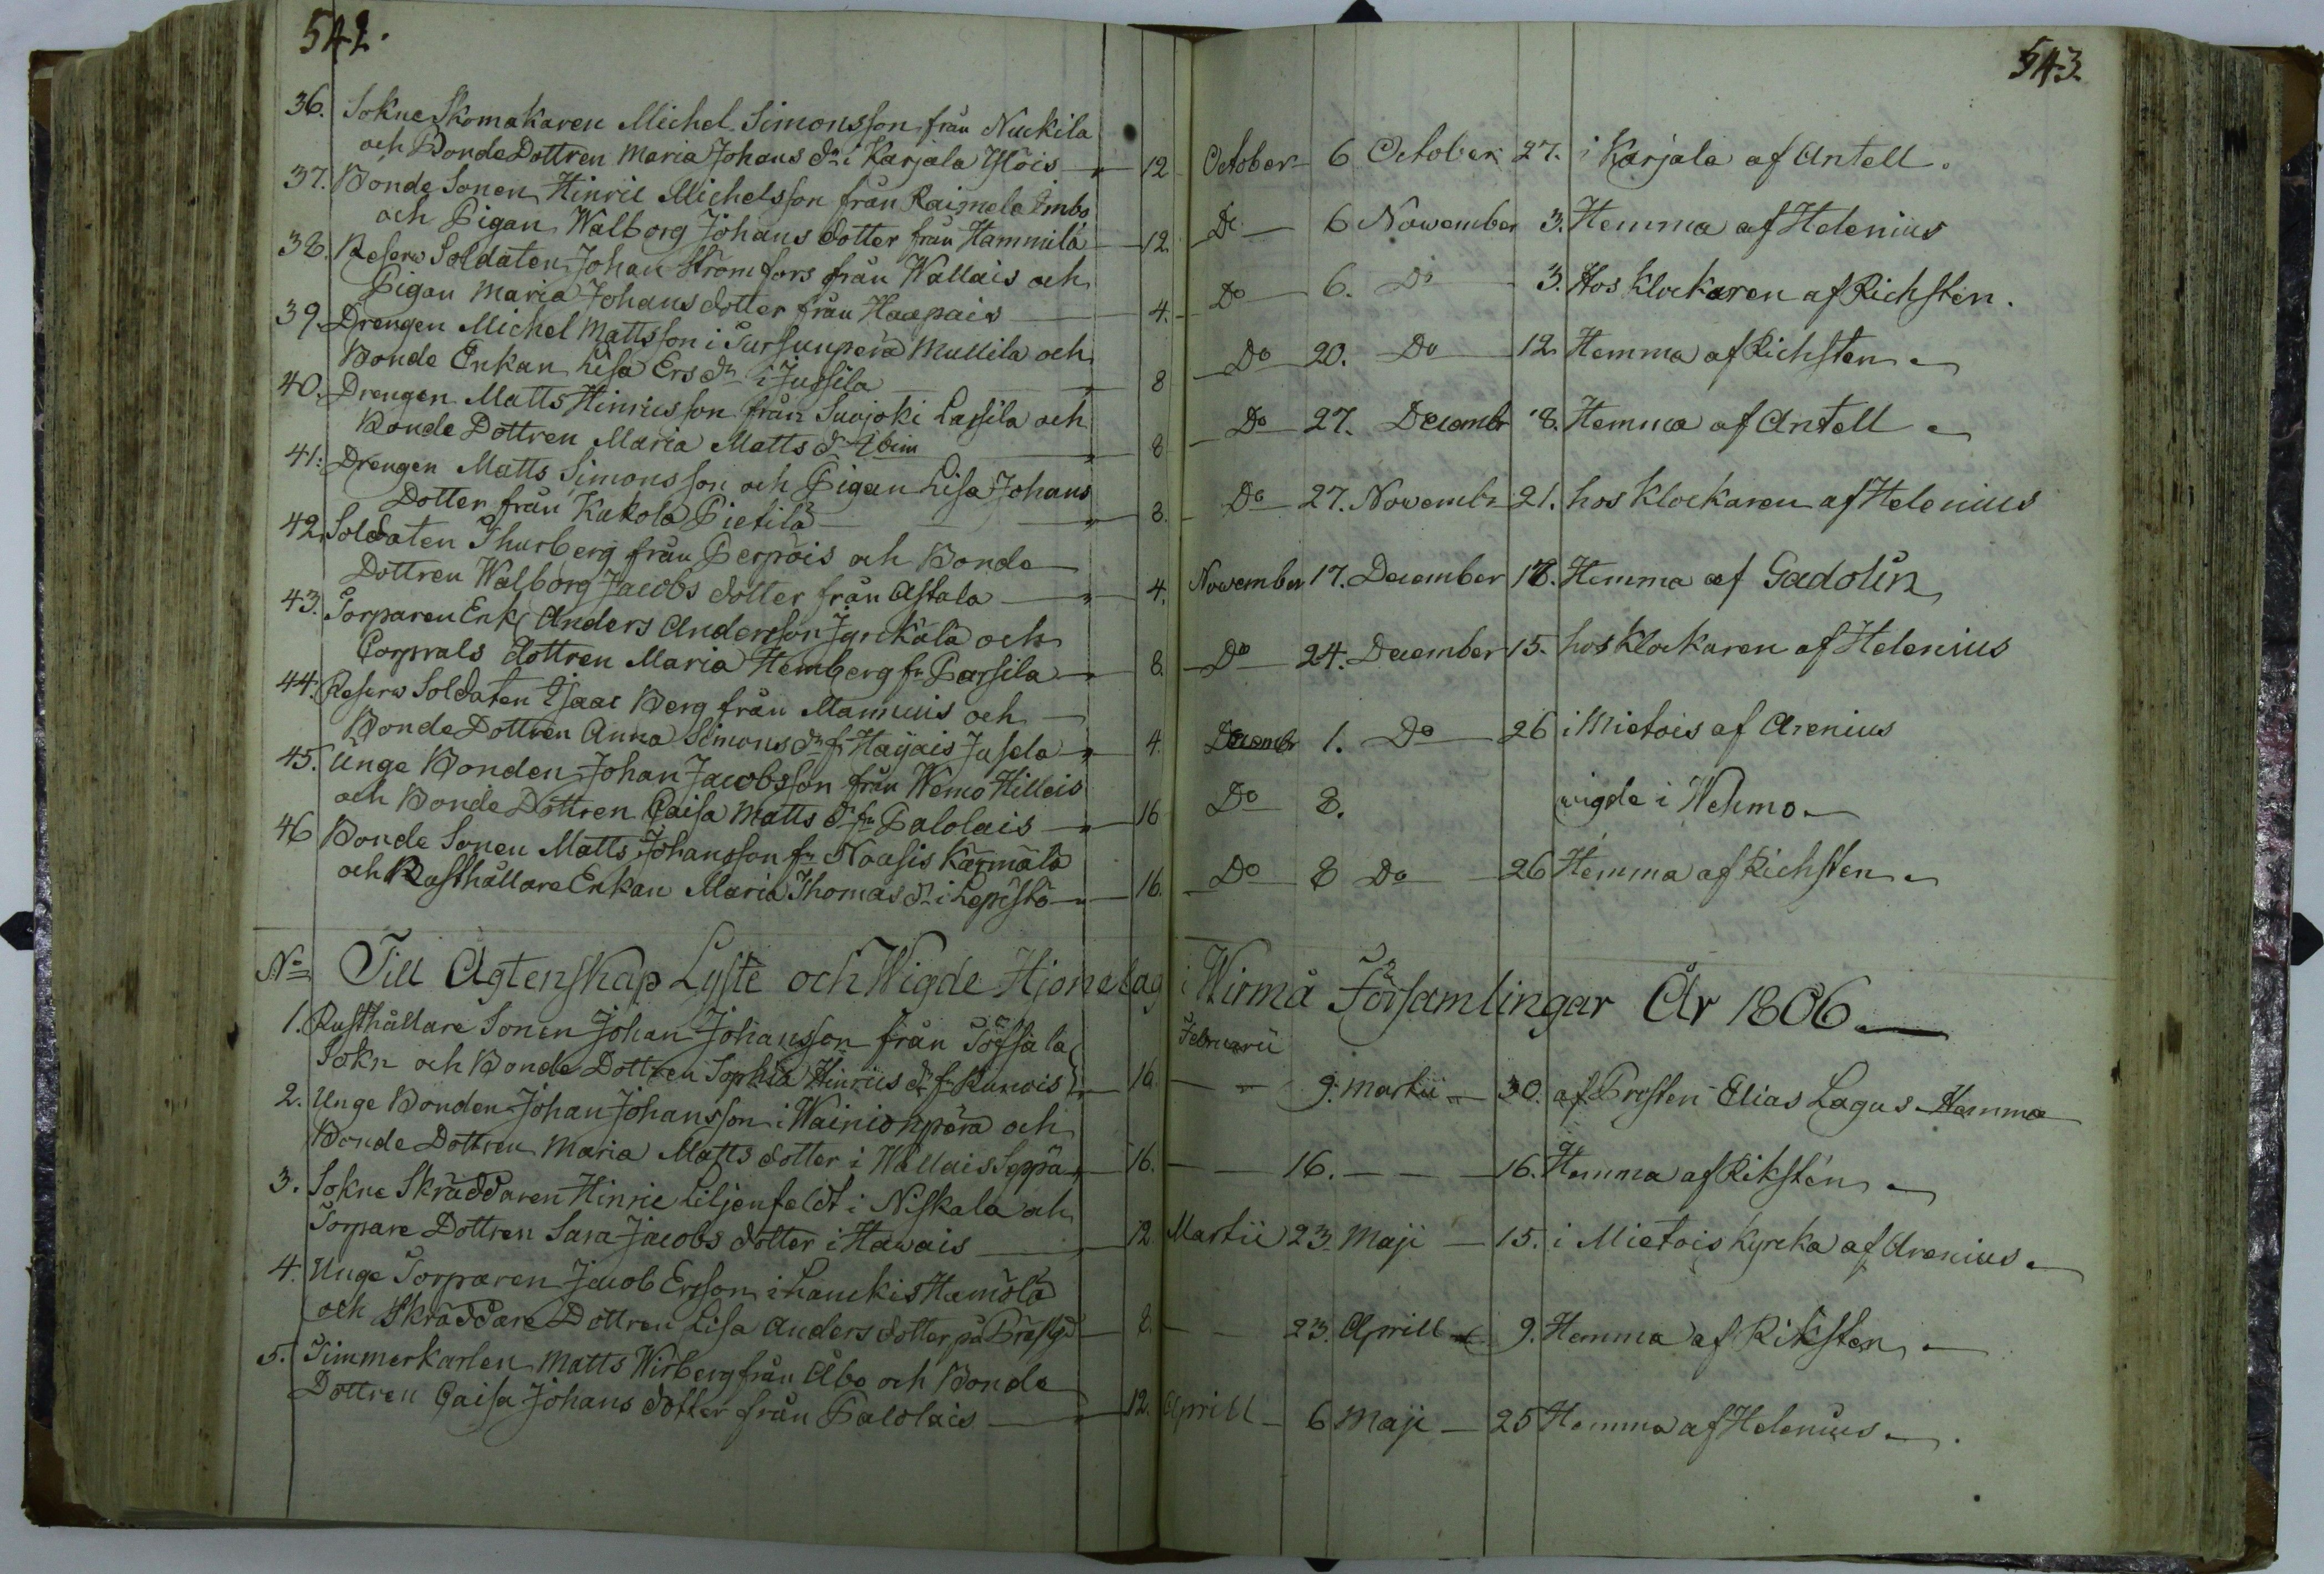 542.
36. Sokne Skomakaren Michel Simonsson från Nuckila
och Bonde Dottren Maria Johans dr i Karjala Ylöis 12
37. Bonde Sonen Hinric Michelsson från Raimela Simbo
och Pigan Walborg Johans dotter från Hammila 12
38. Reserv Soldaten Johan Strömfors från Wallais och
Pigan Maria Johans dotter från Haapais 4.
39. Drengen Michel Mattsson i Pursunperä Mullila och
Bonde Enkan Lisa Ers dr i Jussila 8
40. Drengen Matts Hinricsson från Suojoki Lassila och
Bonde Dottren Maria Matts dr ibim 8
41. Drengen Matts Simonsson och Pigan Lisa Johans
Dotter från Kukola Pietilä 8.
42. Soldaten Thurberg från Perpöis och Bonde
Dottren Walborg Jacobs dotter från Astala 4.
43. Torparen Enkl Anders Andersson Jyrkälä och
Corprals dottren Maria Hemberg fr Parsila 8.
44. Reserv Soldaten Isaac Berg från Mannuis och
Bonde Dottren Anna Simons dr fr Hayais Jusela 4.
45. Unge Bonden Johan Jacobsson från Wemo Hilleis
och Bonde Dottren Caisa Matts dr fr Palolais 16
46 Bonde Sonen Matts Johansson fr Noasis Kärmälä
och Rusthållare Enkan Maria Thomas dr i Lepistö 16.
No Till Ägtenskap Lyste och Wigde Hjonelag
1. Rusthållare Sonen Johan Johansson från Töfsala
Sokn och Bonde Dottren Sophia Hinrics dr fr Runois 16.
2. Unge Bonden Johan Johansson i Wainionperä och
Bonde Dottren Maria Matts dotter i Wallais Seppä 16.
3. Sokne Skräddaren Hinric Liljenfeldt i Niskala och
Torpare Dottren Sara Jacobs dotter i Hawais 12
4. Unge Torparen Jacob Ersson i Lanckis Hamölä
och Skräddare Dottren Lisa Anders dotter på Prästgd 8.
5. Timmerkarlen Matts Wirberg från Åbo och Bonde
Dottren Caisa Johans dotter från Palolais 12.
543.
October 6 October 27. i Karjala af Antell.
Do 6 November 3. Hemma af Helenius
Do 6. Do 3. Hos klockaren af Richsten.
Do 20. Do 12 Hemma af Richsten
Do 27. Decembr 8. Hemma af Antell
Do 27. Novembr 21. hos klockaren af Helenius
November 17. December 18. Hemma af Gadolin
Do 24. December 15. hos klockaren af Helenius
Decembr 1. Do 26 i Mietois af Arenius
Do 8. wigde i Wehmo
Do 8 Do 26 Hemma af Richsten
i Wirmå Församlingar År 1806
Februarii
9. Martii 30. af Presten Elias Lagus Hemma
16. 16. Hemma af Rikstén
Martii 23. Maji 15. i Mietois Kyrcka af Arenius
23. Aprill 9. Hemma af Riksten
Aprill 6 Maji 25 Hemma af Helenius